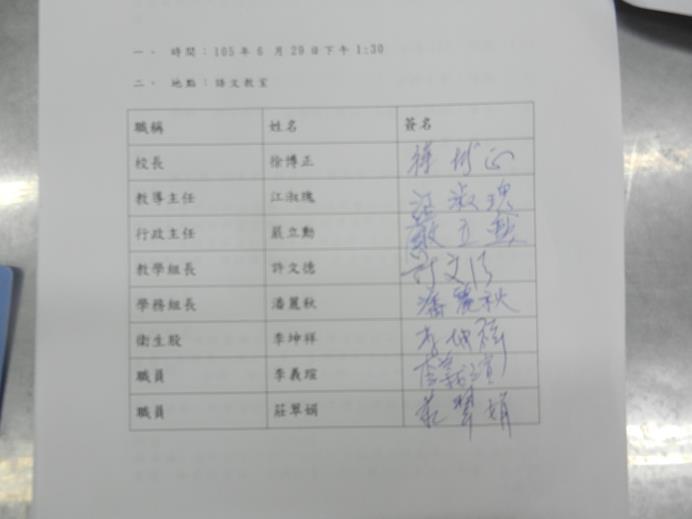 一、 時間：105 年 6 月 29 日下午 1:30
二、 地點：語文教室
職稱 姓名 簽名
校長 徐博正 徐博正
教導主任 江淑瑰 江淑瑰
行政主任 嚴立勳 嚴立勳
教學組長 許文德 許文德
學務組長 潘麗秋 潘麗秋
衛生股 李坤祥 李坤祥
職員 李義瑄 李義瑄
職員 莊翠娟 莊翠娟